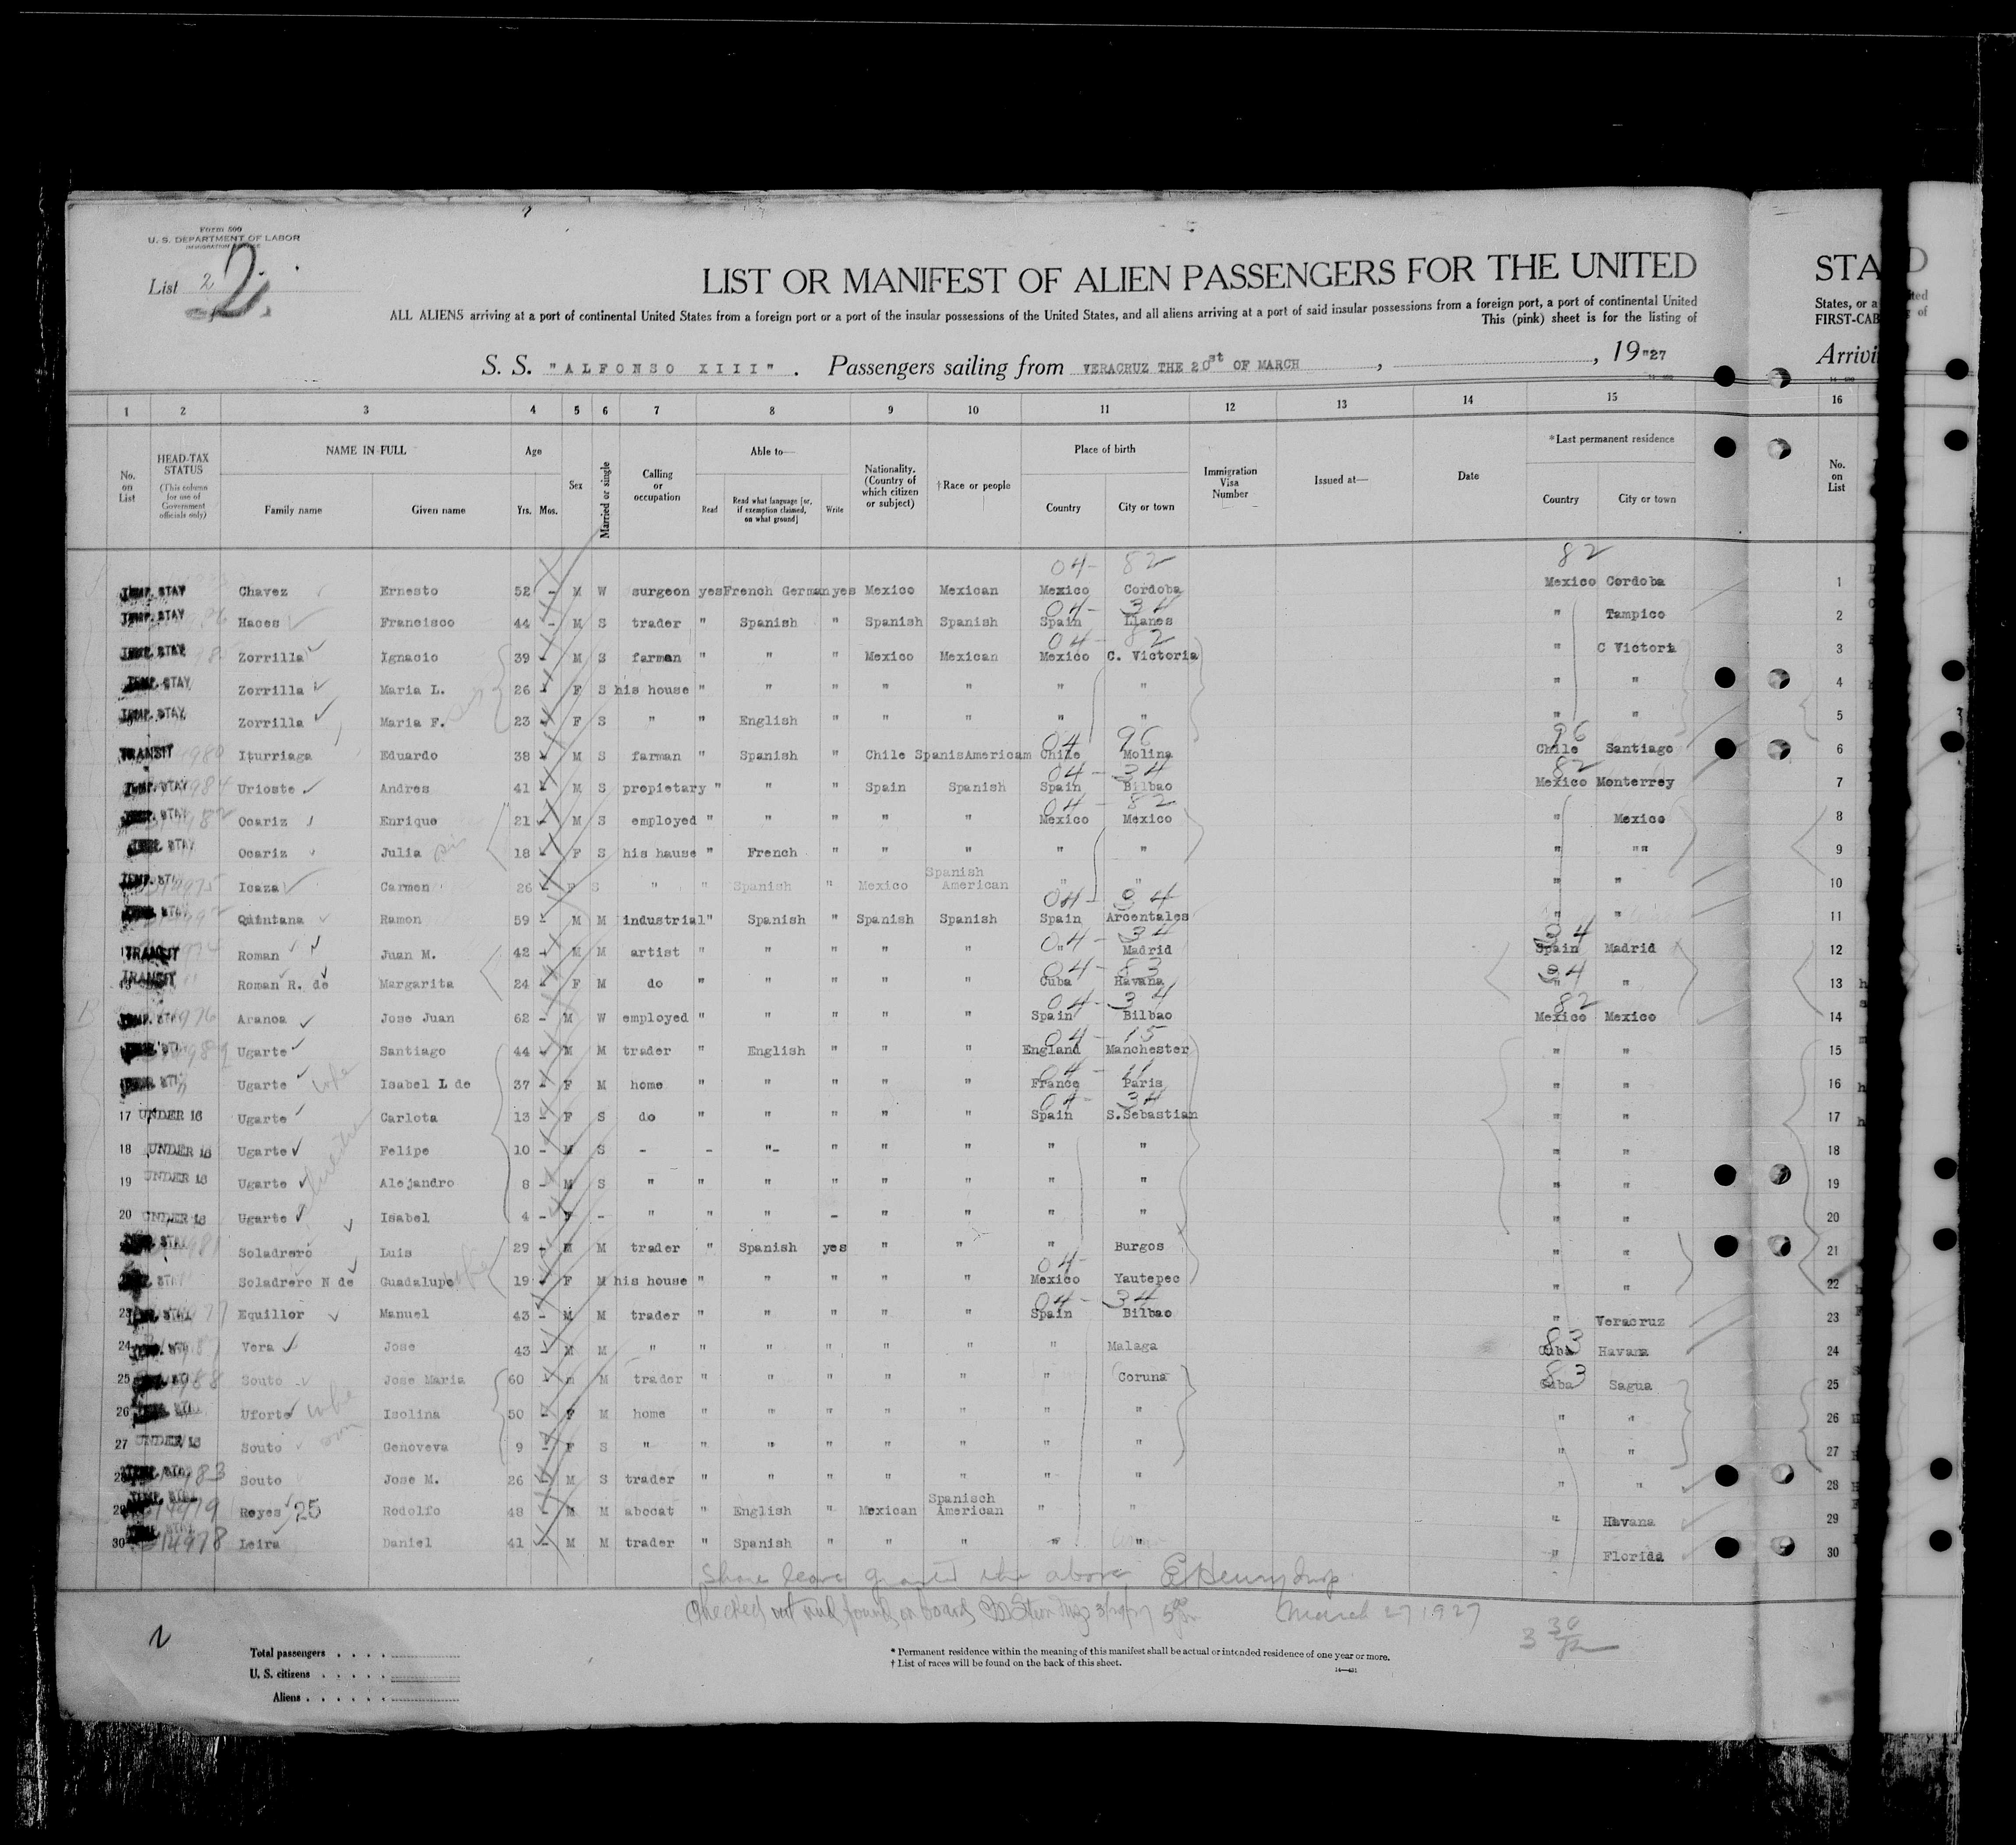 Form 500
U. S. DEPARTMENT OF LABOR
IMMIGRATION SERVICE
List 2
2
LIST OR MANIFEST OF ALIEN PASSENGERS FOR THE UNITED
STA
ALL ALIENS arriving at a port of continental United States from a foreign port or a port of the insular possessions of the United States, and all aliens arriving at a port of said insular possessions from a foreign port, a port of continental United
States, or a
This (pink) sheet is for the listing of
FIRST-CAB
S. S. "ALFONSO XIII". Passengers sailing from VERACRUZ THE 20st OF MARCH , , 19"27
Arrivi
1 2 3 4 5 6 7 8 9 10 11 12 13 14 15 16
No. on List
HEAD-TAX STATUS (This column for use of Government officials only)
NAME IN FULL Family name Given name
Age Yrs. Mos.
Sex
Married or single
Calling or occupation
Able to— Read Read what language [or, if exemption claimed, on what ground] Write
Nationality. (Country of which citizen or subject)
†Race or people
Place of birth Country City or town
Immigration Visa Number
Issued at—
Date
*Last permanent residence Country City or town
No. on List
04- 82 82
TEMP. STAY Chavez Ernesto 52 - M W surgeon yes French German yes Mexico Mexican Mexico Cordoba Mexico Cordoba 1
04- 34
TEMP. STAY Haces Francisco 44 - M S trader " Spanish " Spanish Spanish Spain Llanes " Tampico 2
04- 82
TEMP. STAY Zorrilla Ignacio 39 - M S farman " " " Mexico Mexican Mexico C. Victoria " C Victoria 3
TEMP. STAY Zorrilla Maria L. 26 - F S his house " " " " " " " " " 4
TEMP. STAY Zorrilla Maria F. 23 - F S " " English " " " " " " " 5
04 96 96
TRANSIT Iturriaga Eduardo 38 - M S farman " Spanish " Chile SpanisAmericam Chile Molina Chile Santiago 6
04- 34 82
TEMP. STAY Urioste Andres 41 - M S propietary " " " Spain Spanish Spain Bilbao Mexico Monterrey 7
04- 82
TEMP. STAY Ocariz Enrique 21 - M S employed " " " " " Mexico Mexico " Mexico 8
TEMP. STAY Ocariz Julia 18 - F S his hause " French " " " " " " "" 9
TEMP. STAY Icaza Carmen 26 - F S " " Spanish " Mexico Spanish American " " " " 10
04- 34
TEMP. STAY Quintana Ramon 59 - M M industrial " Spanish " Spanish Spanish Spain Arcentales " " 11
04- 34 34
TRANSIT Roman Juan M. 42 - M M artist " " " " " " Madrid Spain Madrid 12
04- 83 34
TRANSIT Roman R. de Margarita 24 - F M do " " " " " Cuba Havana " " 13
04- 34 82
TEMP. STAY Aranoa Jose Juan 62 - M W employed " " " " " Spain Bilbao Mexico Mexico 14
04- 15
Ugarte Santiago 44 - M M trader " English " " " England Manchester " " 15
04- 11
Ugarte wife Isabel L de 37 - F M home " " " " " France Paris " " 16
04- 34
17 UNDER 16 Ugarte Carlota 13 - F S do " " " " " Spain S.Sebastian " " 17
18 UNDER 16 Ugarte Felipe 10 - M S - - "- " " " " " " " 18
19 UNDER 16 Ugarte Alejandro 8 - M S " " " " " " " " " " 19
20 UNDER 16 Ugarte Isabel 4 - F - " " " - " " " " " " 20
Soladrero Luis 29 - M M trader " Spanish yes " " " Burgos " " 21
04-
Soladrero N de Guadalupe wife 19 - F M his house " " " " " Mexico Yautepec " " 22
04- 34
23 Equillor Manuel 43 - M M trader " " " " " Spain Bilbao " Veracruz 23
83
24 Vera Jose 43 M M " " " " " " " Malaga Cuba Havana 24
83
25 Souto Jose Maria 60 - m M trader " " " " " " Coruna Cuba Sagua 25
26 Uforte wife Isolina 50 - F M home " " " " " " " " " 26
27 UNDER 16 Souto Genoveva 9 - F S " " " " " " " " " " 27
28 Souto Jose M. 26 - M S trader " " " " " " " " " 28
29 14979 Reyes 25 Rodolfo 48 - M M abocat " English " Mexican Spanisch American " " " Havana 29
30 14978 Leira Daniel 41 - M M trader " Spanish " " " " " " Florida 30
Shore leave granted the above E Henry Insp
Checked out and found on board 5 March 27 1927
3 30
Total passengers
U. S. citizens
Aliens
* Permanent residence within the meaning of this manifest shall be actual or intended residence of one year or more.
† List of races will be found on the back of this sheet.